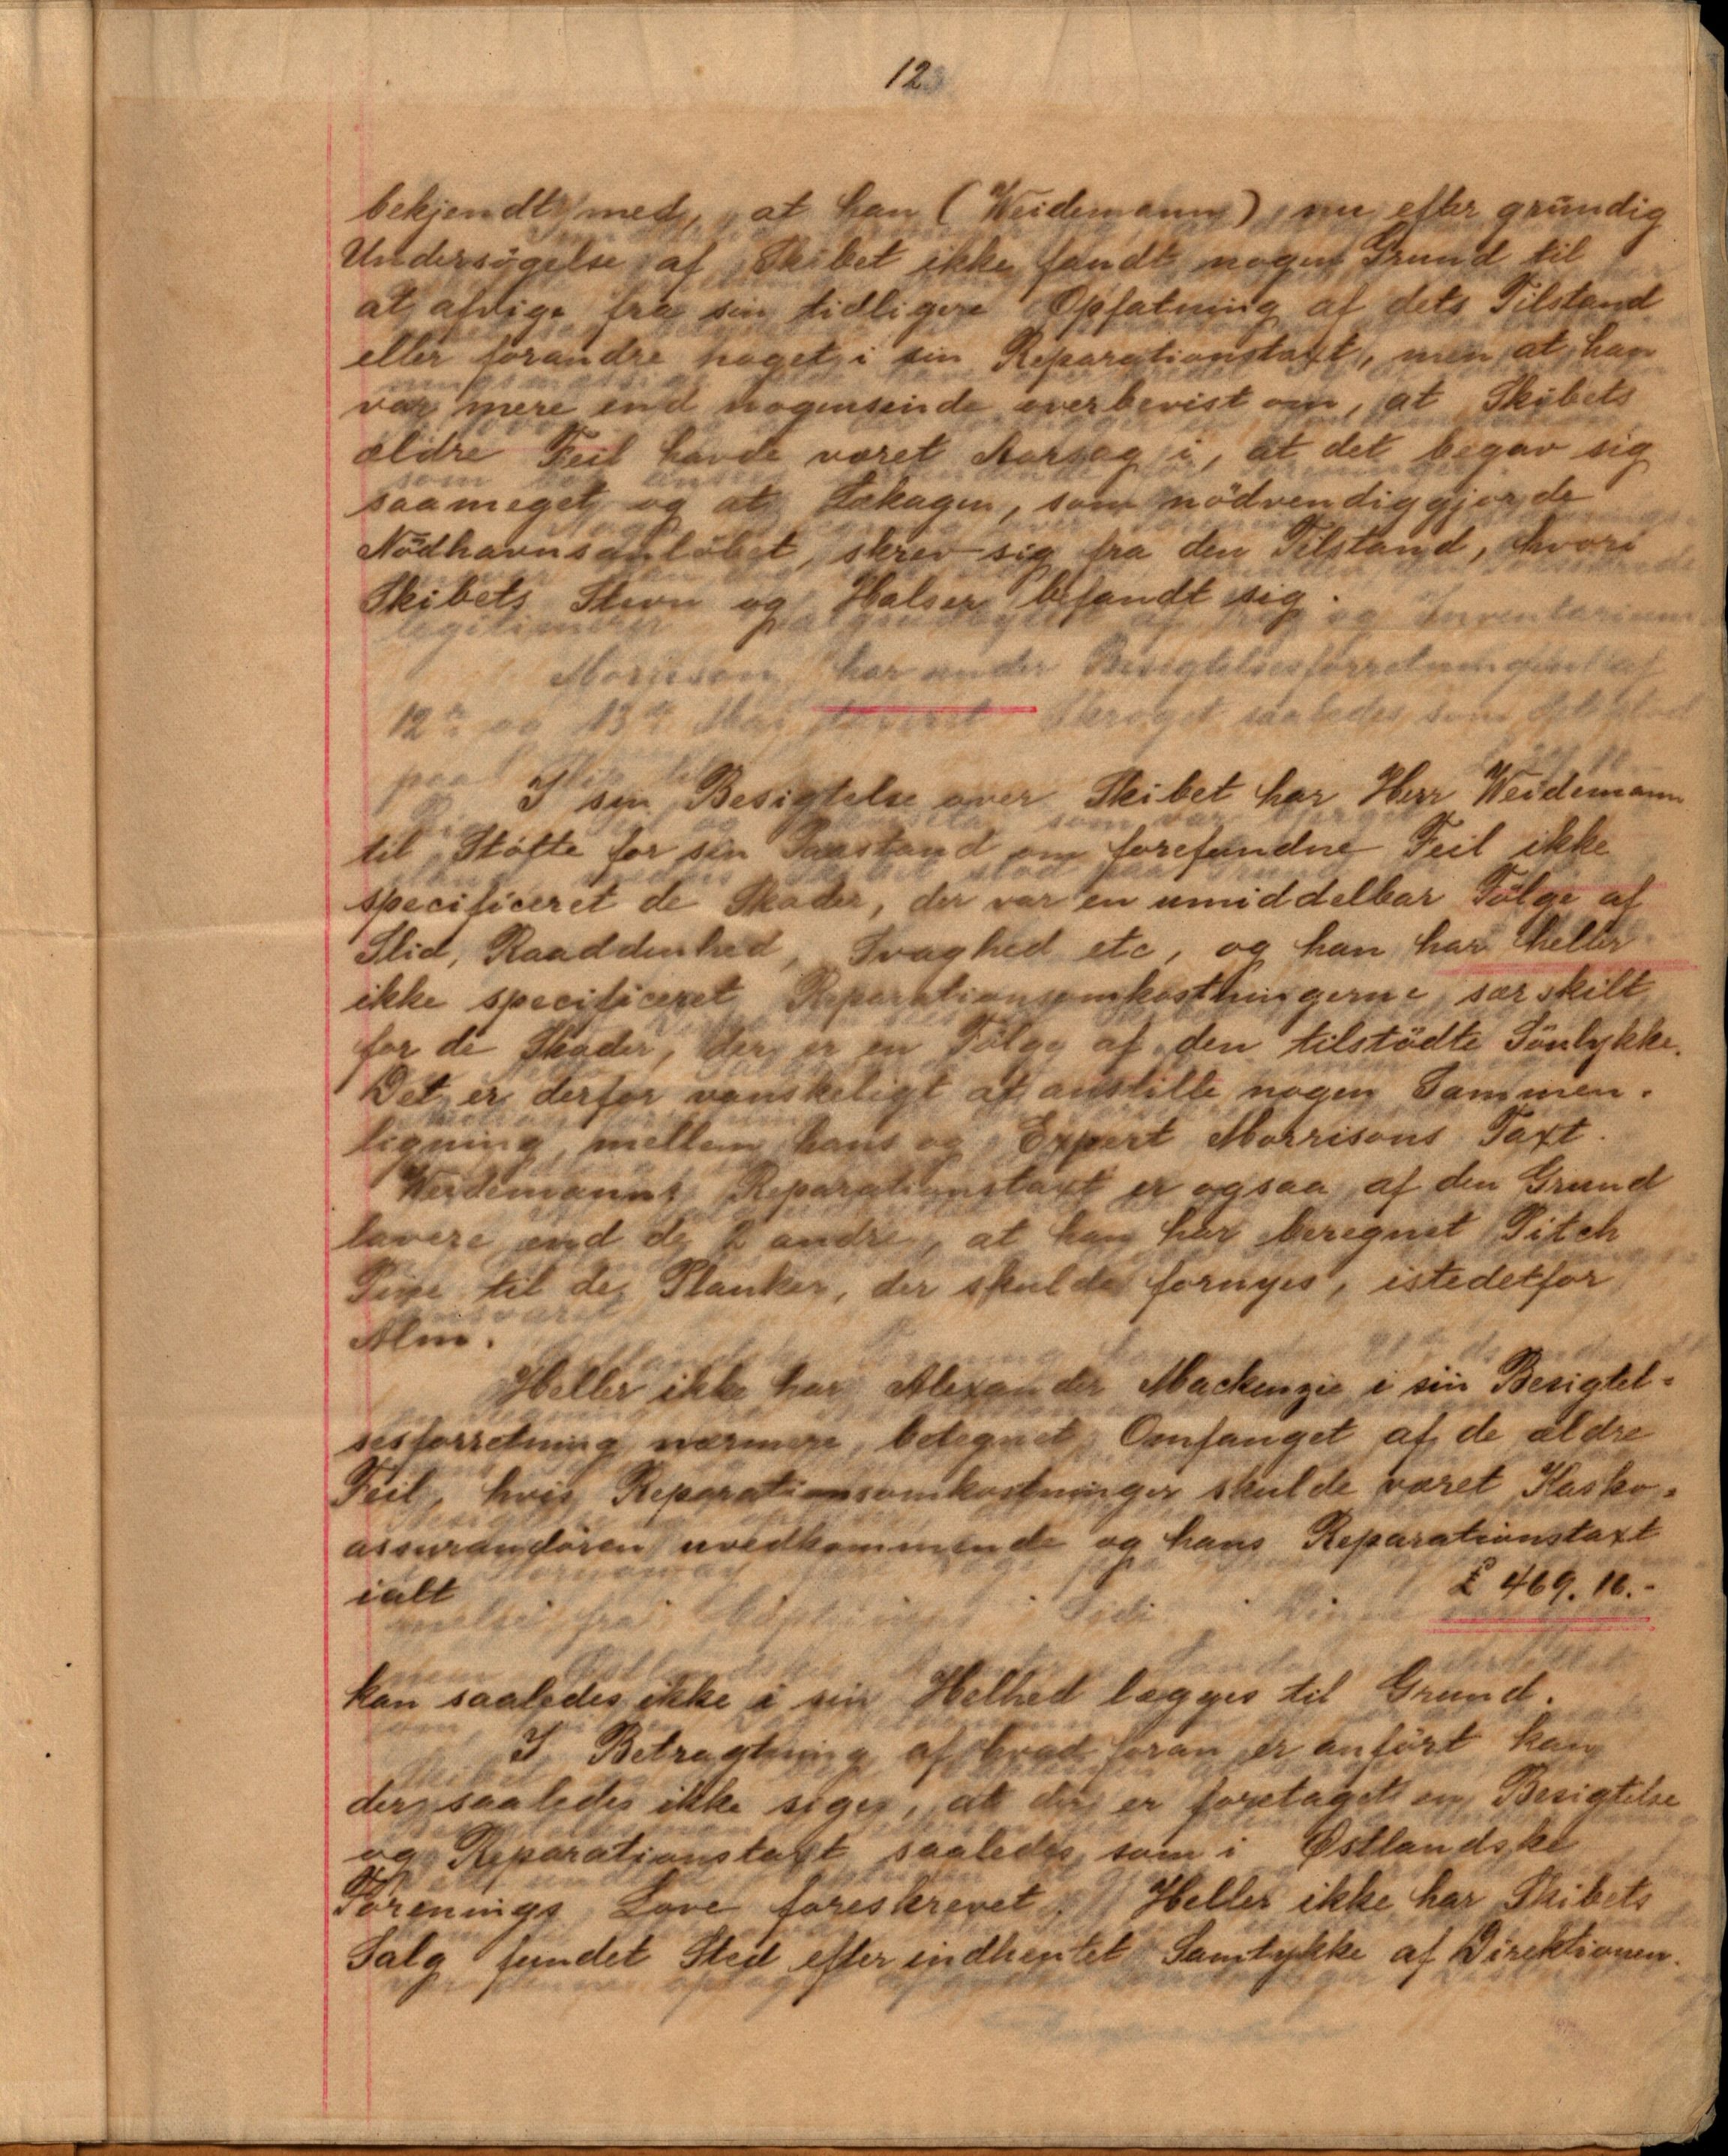 12
bekjendt med, at han (Weidemann) nu efter grundig
Undersögelse af Skibet ikke fandt nogen Grund til
at afvige fra sin tidligere Opfatning af dets Tilstand
eller forandre noget i sin Reparationstaxt, men at han
var mere end nogensinde overbevist om, at Skibets
ældre Feil havde været Aarsag i, at det begav sig
saameget og at Lækagen, som nödvendiggjorde
Nödhavnsanlöbet, skrev sig fra den Tilstand, hvori
Skibets Stevn og Halser befandt sig.
I sin Besigtelse over Skibet har Herr Weidemann
til Stötte for sin Paastand om forefundne Feil ikke
specificeret de Skader, der var en umiddelbar Fölge af
Slid, Raaddenhed, Svaghed etc, og han har heller
ikke specificeret Reparationsomkostningerne særskilt
for de Skader, der er en Fölge af den tilstödte Söulykke.
Det er derfor vanskeligt at anstille nogen Sammen-
ligning mellem hans og Expert Morrisons Taxt.
Weidemanns Reparationstaxt er ogsaa af den Grund
lavere end de 2 andre, at han har beregnet Pitch
Pine til de Planker, der skulde fornyes, istedetfor
Alm.
Heller ikke har Alexander Mackenzie i sin Besigtel-
sesforretning nærmere betegnet Omfanget af de ældre
Feil, hvis Reparationsomkostninger skulde været Kasko-
assurandören uvedkommende og hans Reparationstaxt
ialt £ 469. 10.-
kan saaledes ikke i sin Helhed lægges til Grund.
I Betragtning af hvad foran er anfört kan
der saaledes ikke siges, at der er foretaget en Besigtelse
og Reparationstaxt saaledes som i Østlandske
Forenings Love foreskrevet. Heller ikke har Skibets
Salg fundet Sted efter indhentet Samtykke af Direktionen.